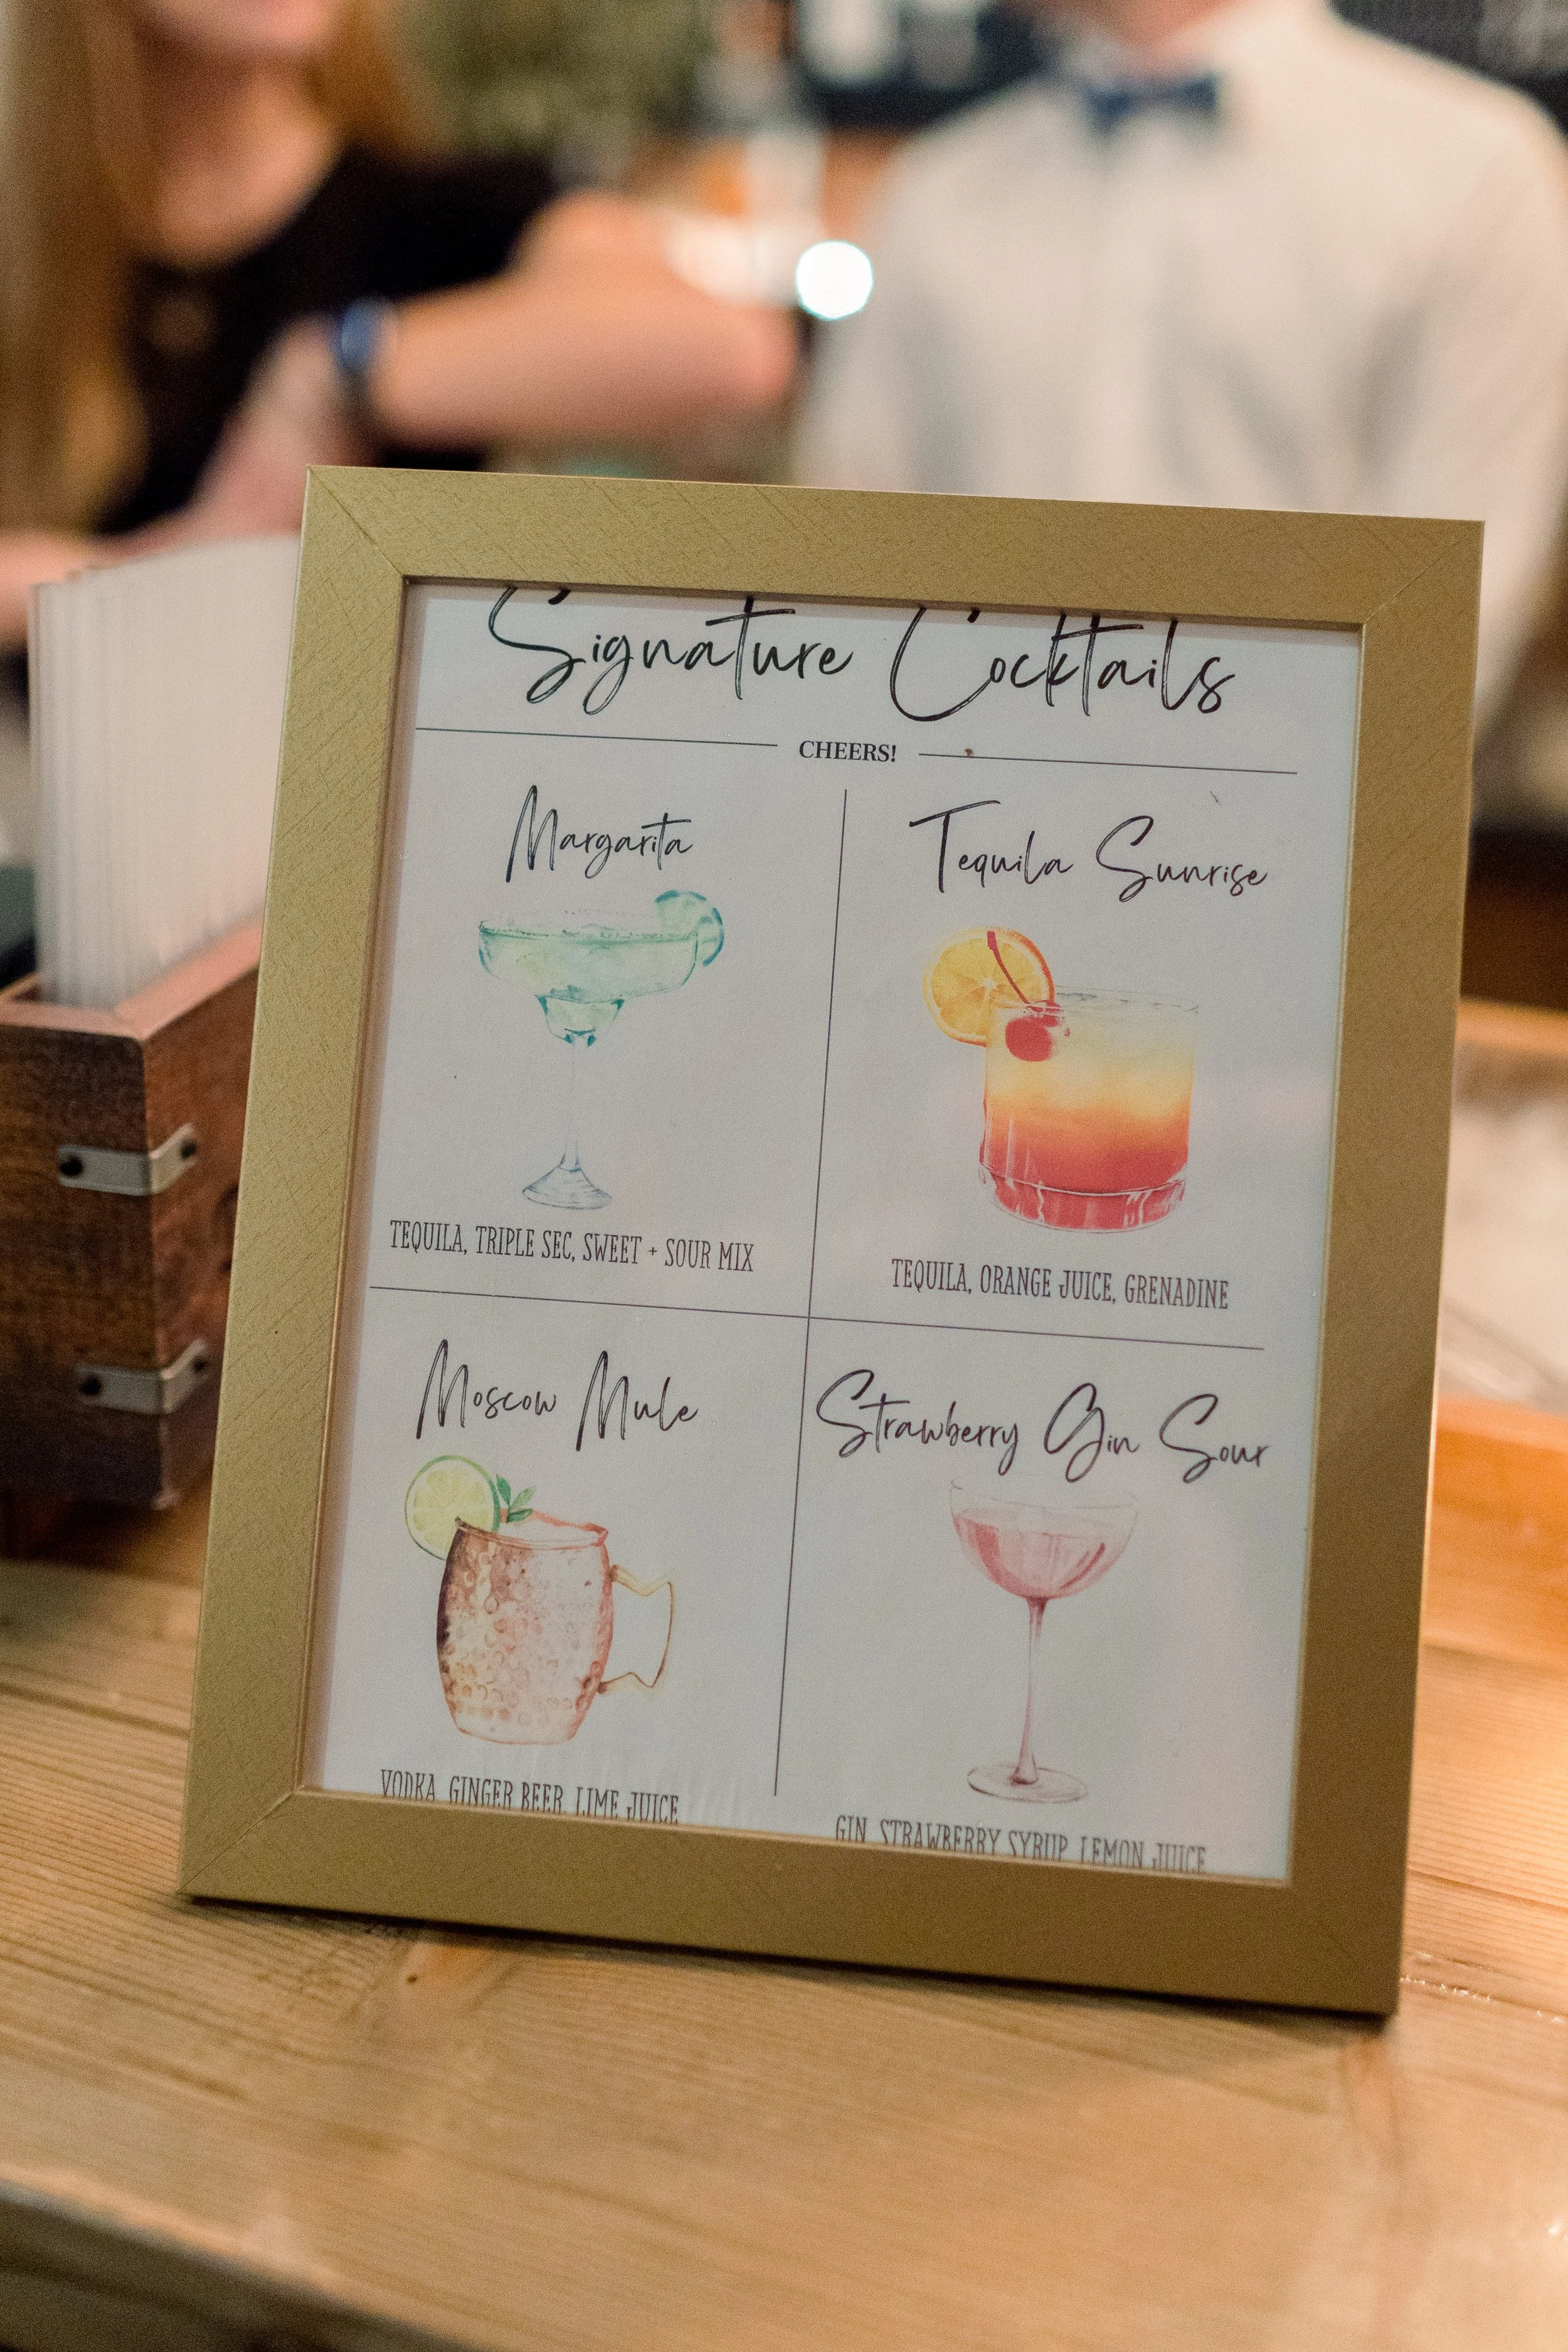 Signature Cocktails
CHEERS!
Margarita
TEQUILA, TRIPLE SEC, SWEET + SOUR MIX
Tequila Sunrise
TEQUILA, ORANGE JUICE, GRENADINE
Moscow Mule
VODKA, GINGER BEER, LIME JUICE
Strawberry Gin Sour
GIN, STRAWBERRY SYRUP, LEMON JUICE